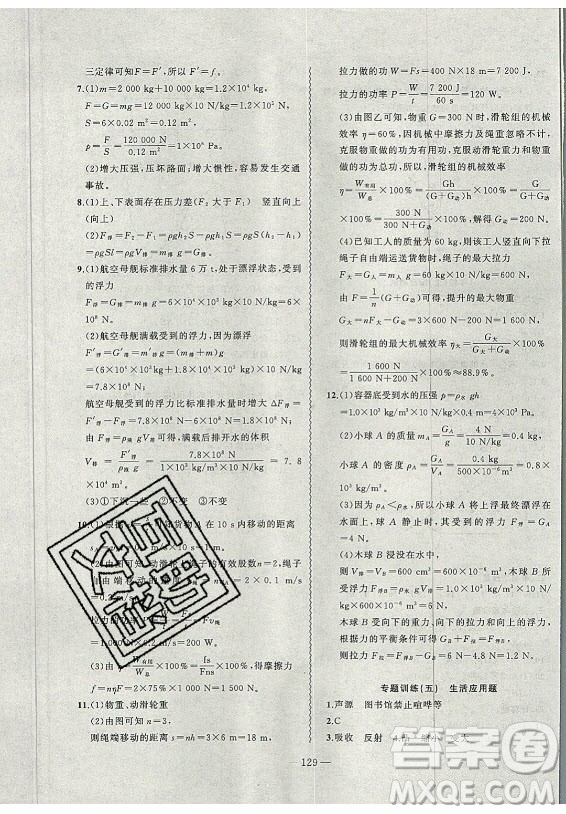 三定律可知F=F′,所以F′=f。
7.(1)m=2 000 kg+10 000 kg=1.2×10⁴ kg
F=G=mg=1.2×10⁴ kg×10 N/kg=1.2×10⁵ N
S=6×0.02 m²=0.12 m²
p=F/S=120 000 N/0.12 m²=1×10⁶ Pa。
(2)增大压强,压坏路面;增大惯性,容易发生交通
事故。
8.(1)上、下表面存在压力差(F₂大于F₁) 竖直向上
(向上)
(2)F浮=F₂-F₁=ρgh₂S-ρgh₁S=ρgS(h₂-h₁)
=ρgSl=ρgV排=m排g=G排。
9.(1)航空母舰标准排水量6万t,处于漂浮状态,受到
的浮力
F浮=G排=m排g=6×10⁴×10³ kg×10 N/kg=6×
10⁸ N
(2)航空母舰满载受到的浮力,因为漂浮
F′浮=G′排=m′排g=(m排+m)g
=(6×10⁴×10³ kg+1.8×10⁴×10³ kg)×10 N/kg
=7.8×10⁸ N
航空母舰受到的浮力比标准排水量时增大ΔF浮=
F′浮-F浮=7.8×10⁸ N-6×10⁸ N=1.8×10⁸ N
由F浮=ρ液gV排得,满载后排开水的体积
V排=F′浮/ρ海水g=7.8×10⁸ N/1×10³ kg/m³×10 N/kg=7.8
×10⁴ m³
(3)①下沉一些 ②不变 ③不变
A在10 s内移动的距离
(2)由图可知,动滑轮上绳子的有效股数n=2,绳子
自由端移动的
=2×0.1 m/s
=1 000 N×
=200 W
(3)由η=W有用/W总×100%=fs/Fns×100%,得摩擦力
11.(1)物重、动滑轮重
(2)由图可知n=3,
则绳端移动的距离s=nh=3×6 m=18 m,
拉力做的功W=Fs=400 N×18 m=7 200 J,
拉力的功率P=W/t=7 200 J/60 s=120 W。
(3)由图乙可知,物重G=300 N时,滑轮组的机械
效率η=60%,因机械中摩擦力及绳重忽略不计,
克服物重做的功为有用功,克服物重和动滑轮重力
做的功为总功,所以,滑轮组的机械效率
η=W有用/W总×100%=Gh/(G+G动)h×100%=G/(G+G动)
×100%=300 N/(300 N+G动)×100%,解得G动=200 N。
(4)已知工人的质量为60 kg,则该工人竖直向下拉
绳子自由端运送货物时,绳子的最大拉力
F大=G人=m人g=60 kg×10 N/kg=600 N,
由F=1/n(G+G动)可得,提升的最大物重
G大=nF大-G动=3×600 N-200 N=1 600 N,
则滑轮组的最大机械效率η大=G大/(G大+G动)×100%
=1 600 N/(1 600 N+200 N)×100%≈88.9%。
12.(1)容器底受到水的压强p=ρ水gh
=1.0×10³ kg/m³×10 N/kg×0.2 m=2×10³ Pa。
(2)小球A的质量mA=GA/g=4 N/10 N/kg=0.4 kg
小球A的密度ρA=mA/VA=0.4 kg/500×10⁻⁶ m³=0.8×
10³ kg/m³
(3)因为ρA<ρ水,所以小球A将上浮最终漂浮在
水面上。球A静止时,其受到的浮力F浮=GA
=4 N。
(4)木球B浸没在水中
V排=VB=600 cm³=600×10⁻⁶ m³,木球B所受
的浮力F浮=ρ水gV排=1.0×10³ kg/m³×10 N/kg×
600×10⁻⁶ m³=6 N
木球B受到向下的重力、向下的拉力和向上的浮力。
根据力的平衡条件可得GB+F拉=F浮
所以拉力F拉=F浮-GB=6 N-3 N=3 N。
专题训练(五) 生活应用题
1.声源 图书馆禁止喧哗等
2.C
3.吸收 反射
— 129 —
答案圈
MXQE.COM